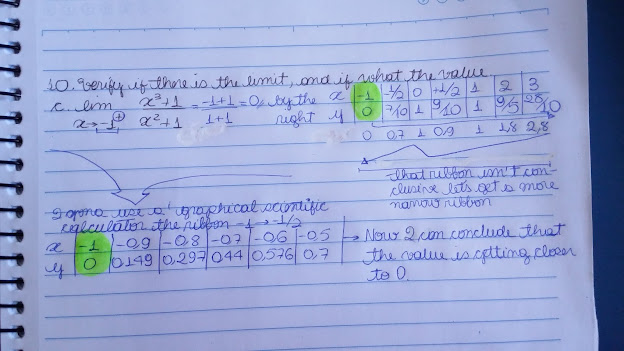 10. Verify if there is the limit, and if what the value
c. lim x→-1⁺ x³+1 / x²+1 = -1+1 / 1+1 = 0, by the right
x -1 -1/2 0 +1/2 1 2 3
y 0 7/10 1 9/10 1 9/5 28/10
0 0,7 1 0,9 1 1,8 2,8
that ribbon isn't con-
clusive lets get a more
narrow ribbon
I gonna use a graphical scientific
calculator the ribbon -1 → -1/2
x -1 -0,9 -0,8 -0,7 -0,6 -0,5
y 0 0,149 0,297 0,44 0,576 0,7
→ Now I can conclude that
the value is getting closer
to 0.